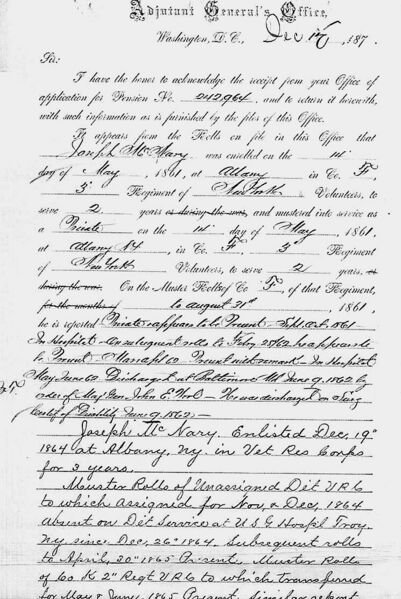 Adjutant General's Office,
Washington, D.C., Dec 17, 187
Sir:
I have the honor to acknowledge the receipt from your Office of
application for Pension No. 242,964, and to return it herewith,
with such information as is furnished by the files of this Office.
It appears from the Rolls on file in this Office that
Joseph McNary, was enrolled on the 14
day of May, 1861, at Albany in Co. F,
3 Regiment of New York Volunteers, to
serve 2 years or during the war, and mustered into service as
a Private on the 14 day of May, 1861,
at Albany N.Y, in Co. F, 3 Regiment
of New York Volunteers, to serve 2 years, or
during the war. On the Muster Roll of Co. F, of that Regiment,
for the months of to August 31st, 1861,
he is reported Private appears to be Present. Sept. Oct. 1861
In Hospital. On subsequent rolls to Feby 28/62 he appears to be
Present. Mar Apl 62 Present with remark - In Hospital
May June 62 Discharged at Baltimore Md June 9, 1862 by
order of Maj Gen. John E. Wool - He was discharged on Surg
Certif of Disability June 9, 1862.
Joseph McNary, Enlisted Dec, 19"
1864 at Albany, Ny. in Vet Res Corps
for 3 years.
Muster Rolls of Unassigned Det V R C
to which Assigned for Nov, & Dec, 1864
Absent on Det Service at U S G Hospl Troy
Ny since Dec, 26" 1864. Subsequent rolls
to April, 30" 1865 Present. Muster Rolls
of Co K 2" Regt V R C to which transferred
for May & June, 1865 Present. Similar report